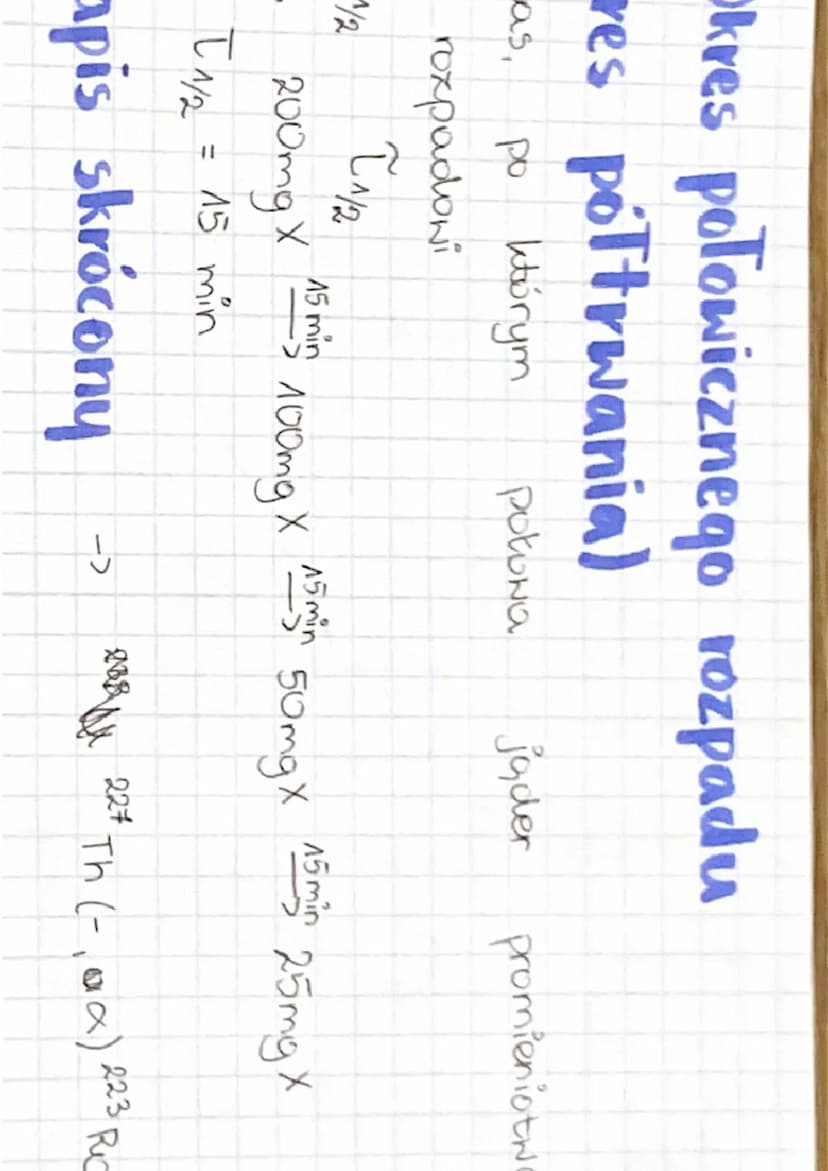 okres połowicznego rozpadu
res półtrwania)
as, po którym połowa jąder promieniotw
rozpadowi
1/2 τ1/2
200mg X 15 min → 100mg X 15 min → 50mg X 15 min → 25mg X
τ1/2 = 15 min
apis skrócony → 227Th (-, α) 223Ra